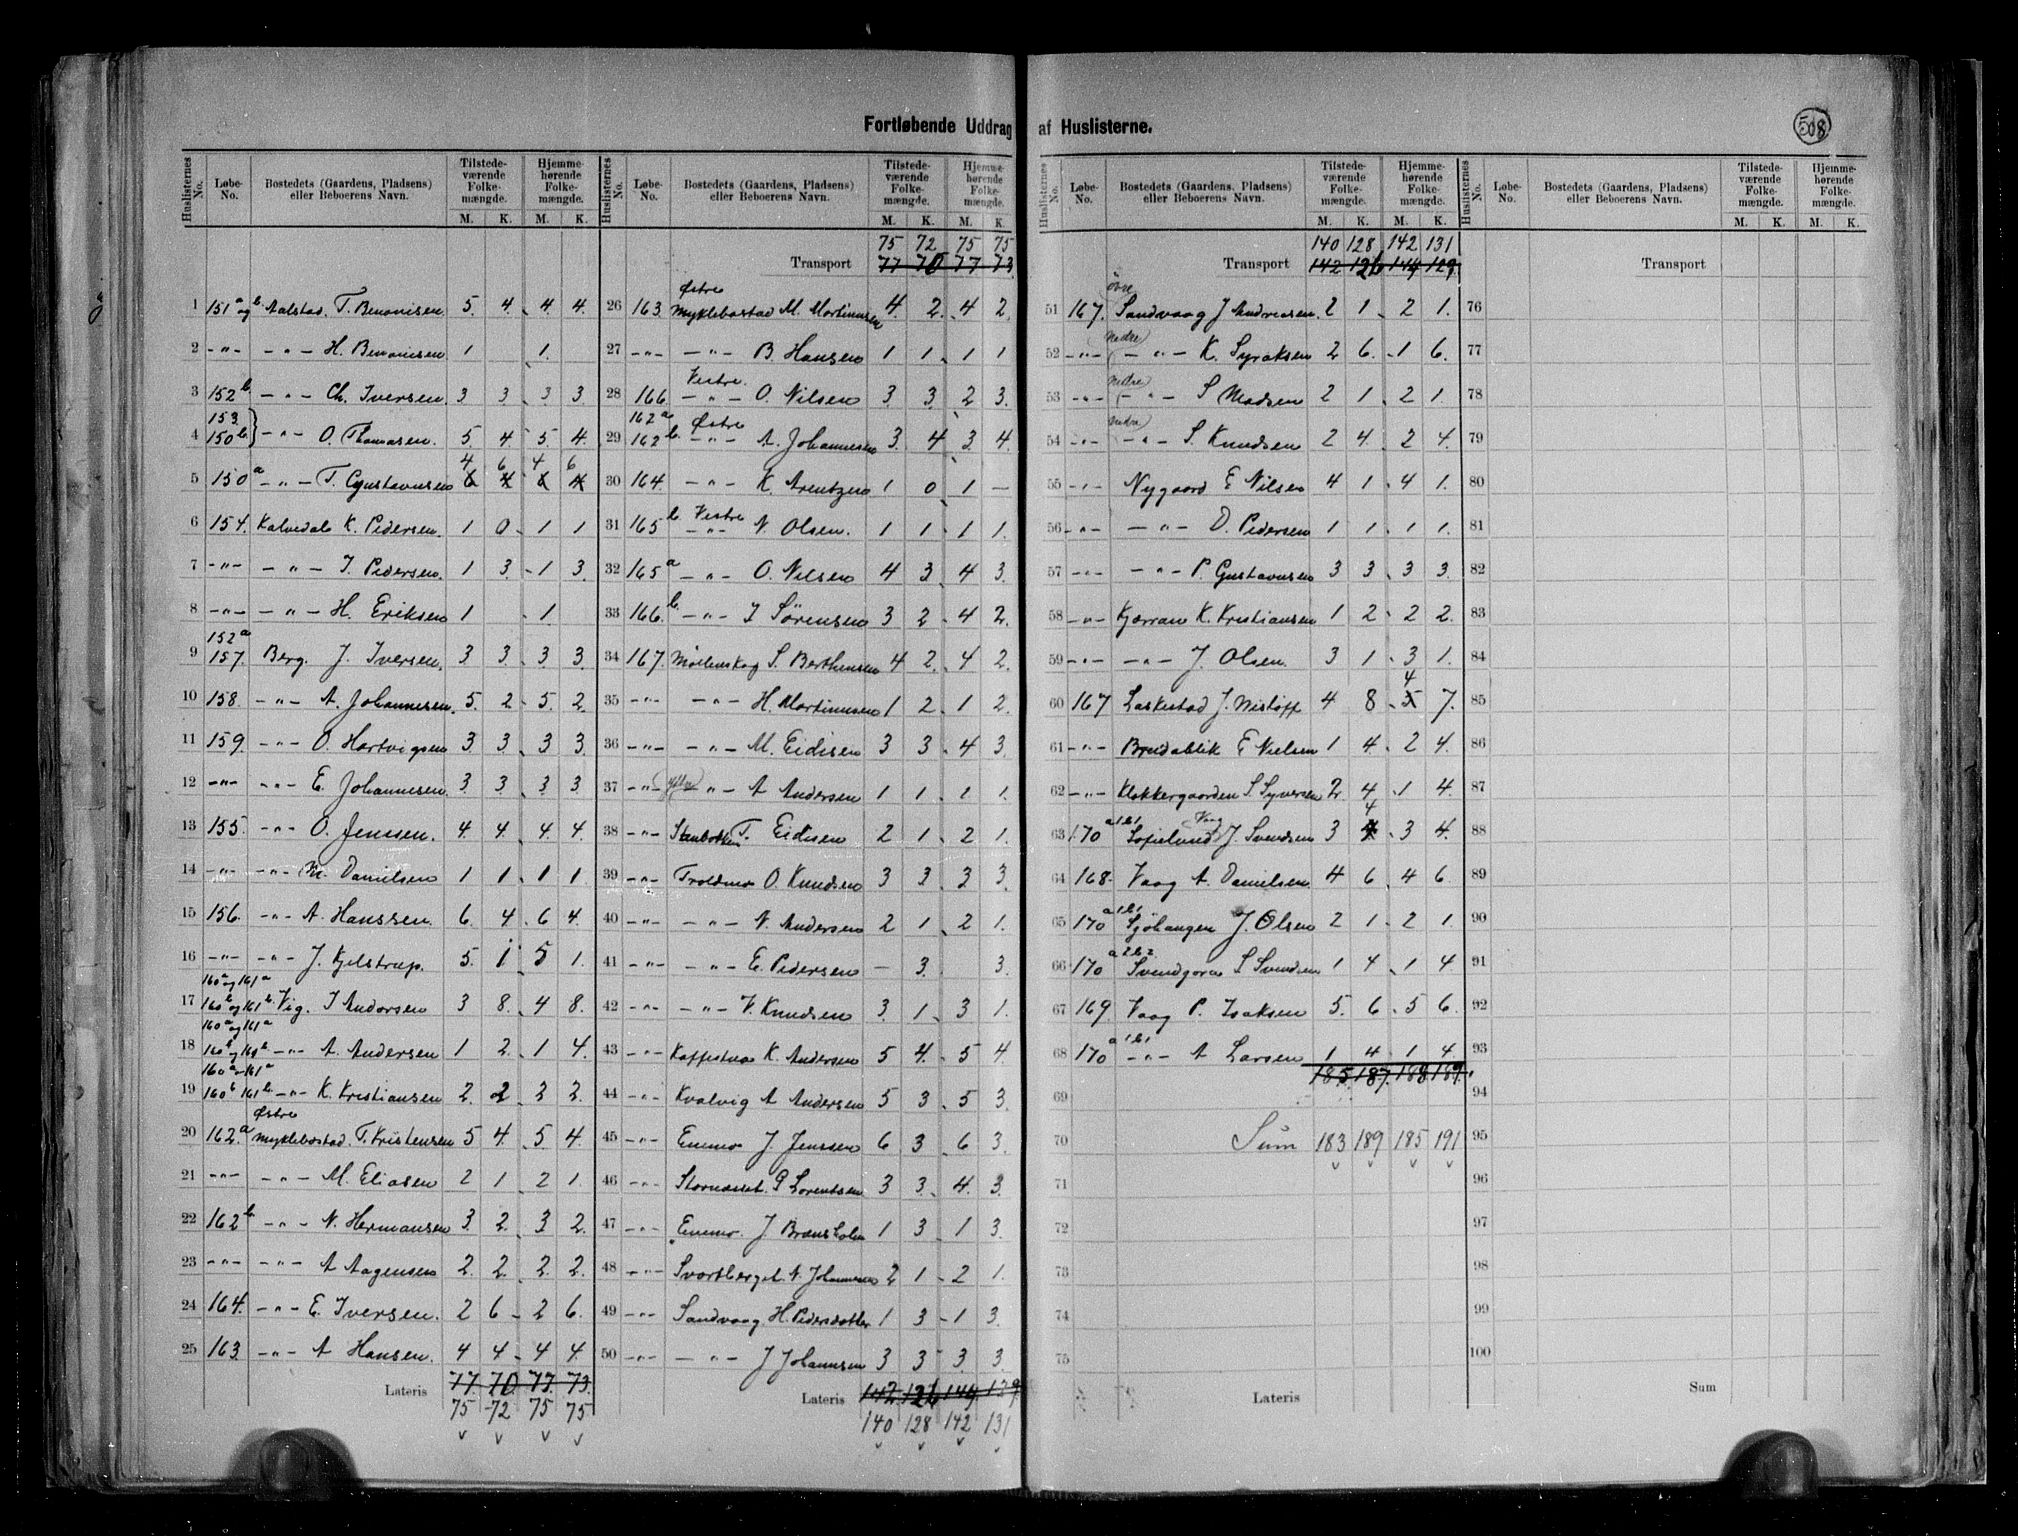 Fortløbende Uddrag af Huslisterne.
508
Huslisternes No. Løbe-No. Bostedets (Gaardens, Pladsens) eller Beboerens Navn. Tilstedeværende Folkemængde. M. K. Hjemmehørende Folkemængde. M. K.
1 151 a og b Aalstad, T. Benonisen 5. 4. 4. 4.
2 -"- -"- H. Benonisen 1 1.
3 152 b. -"- Ch. Iversen. 3. 3. 3 3.
4 153. 150 b. -"- O. Thomasen. 5. 4. 5. 4.
4 6 4 6
5 150 a -"- T. Gustavnsen 6 4 6 4
6 154. Kalvedal K. Pedersen. 1 0 1 1
7 -"- -"- J. Pedersen. 1 3. 1 3.
8 -"- -"- H. Eriksen 1 1.
9 152 a 157. Berg. J. Iversen. 3. 3. 3. 3.
10 158. -"- A. Johannesen. 5. 2. 5. 2.
11 159. -"- O. Hartvigsen 3. 3. 3 3.
12 -"- -"- E. Johannesen. 3. 3. 3 3.
13 155. -"- O. Jenssen. 4. 4. 4. 4.
14 -"- -"- M. Danielsen 1 1. 1 1.
15 156. -"- A. Hanssen. 6. 4 6 4.
16 -"- -"- J. Kjelstrup. 5. 1 5 1.
17 160 a og 161 a 160 b og 161 b. Vig. J Andorsen 3 8. 4 8.
18 160 a og 161 a 160 b og 161 b. -"- A. Andersen 1 2. 1 4.
19 160 a 161 a 160 b 161 b. -"- K. Kristiansen 2. 2 2 2.
20 162 a Østre Myklebostad T. Kristensen 5 4. 5 4.
21 -"- -"- M. Eliasen 2 1 2 1.
22 162 b. -"- N. Hermansen 3. 2. 3. 2.
23 -"- -"- A Aagensen 2. 2. 2. 2.
24 164. -"- E. Iversen. 2 6 2 6.
25 163. -"- A Hansen. 4 4 4 4.
Lateris 77. 70. 77. 73.
75 72 75 75
75 72 75 75
Transport 77 70 77 73
26 163. Østre Myklebostad M. Martinusen 4. 2. 4 2.
27 -"- -"- B. Hansen 1 1. 1 1
28 166. Vestre. -"- O. Nilsen 3. 3. 2 3.
29 162 a 162 b. Østre -"- A. Johannesen 3. 4 3. 4
30 164. -"- K. Arentzen 1 0 1 —
31 165 b. Vestre -"- N. Olsen. 1 1. 1 1.
32 165 a -"- O. Nilsen 4 3. 4 3.
33 166 b. -"- J Sørensen 3 2. 4 2.
34 167. Møllenskog S. Berthinsen 4 2. 4 2.
35 -"- -"- H. Martinusen 1 2. 1 2.
36 -"- -"- M. Eidisen 3 3. 4 3.
37 -"- -"- A Andersen 1 1. 1 1.
38 -"- Stenbotten T. Eidisen 2 1. 2 1.
39 -"- Troldmo O. Knudsen 3 3. 3 3.
40 -"- -"- N. Andersen 2 1. 2 1.
41 -"- -"- E. Pedersen — 3. 3.
42 -"- -"- V. Knudsen 3. 1. 3 1.
43 -"- Kaffestuo K. Andersen 5 4. 5 4.
44 -"- Kvalvig A Andersen 5 3. 5 3.
45 -"- Enmo J Jenssen 6 3 6 3.
46 -"- Storneset. G Lorentsen 3 3. 4 3.
47 -"- Enmo. J Bransholm 1 3 1 3.
48 -"- Svartberget. N. Johannesen 2 1 2 1.
49 -"- Sandvaag. H. Pedersdotter 1 3 1 3.
50 -"- -"- J Johannsen 3 3 3 3.
Lateris 142. 126 144 129
140 128 142 131
140 128 142 131
Transport 142 126 144 129
51 167. Øvre Sandvaag J Andreasen 2 1 2 1.
52 -"- Nedre -"- K. Syraksen 2 6. 1 6.
53 -"- Nedre -"- S Madsen 2 1. 2 1.
54 -"- Nedre -"- S. Knudsen 2 4. 2 4.
55 -"- Nygaard E Nilsen 4 1. 4 1.
56 -"- -"- O. Pedersen 1 1. 1 1.
57 -"- -"- P. Gustavnsen 3 3. 3 3.
58 -"- Kjørran K. Kristiansen 1 2. 2 2.
59 -"- -"- J. Olsen. 3 1. 3 1.
4
60 167 Laskestad J. Nistøff 4 8. 5 7.
61 -"- Breidablik E Nielsen 1 4. 2 4.
62 -"- Klokkergaarden S. Syversen 2. 4. 1 4.
4
63 170 a1b1 Sofielund Vaag J. Svendsen 3 4 3 4.
64 168. Vaag A. Danielsen 4 6. 4 6.
65 170 a1b1 Sjøhaugen J. Olsen 2 1. 2 1.
66 170 a2b2 Svendgora S Svendsen 1 4. 1 4
67 169. Vaag P. Isaksen 5. 6. 5 6.
68 170 a1b1 -"- A Larsen 1 4. 1 4.
185. 187. 188 189.
69
70 Sum 183 189 185 191
71
72
73
74
75
Lateris
Transport
76
77
78
79
80
81
82
83
84
85
86
87
88
89
90
91
92
93
94
95
96
97
98
99
100
Sum